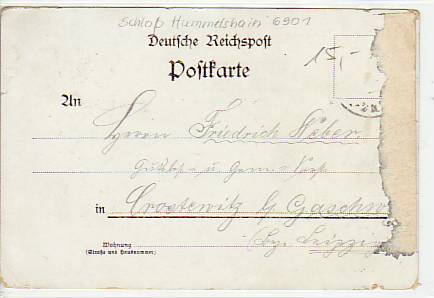 Schloß Hummelshain 6901
Deutsche Reichspost
15,-
Postkarte
An
Herrn Friedrich Weber
Gutsbes. u. Gem.-Vorst.
in Crostewitz b/ Gaschw
(Bez. Leipzig
Wohnung
(Straße und Hausnummer)